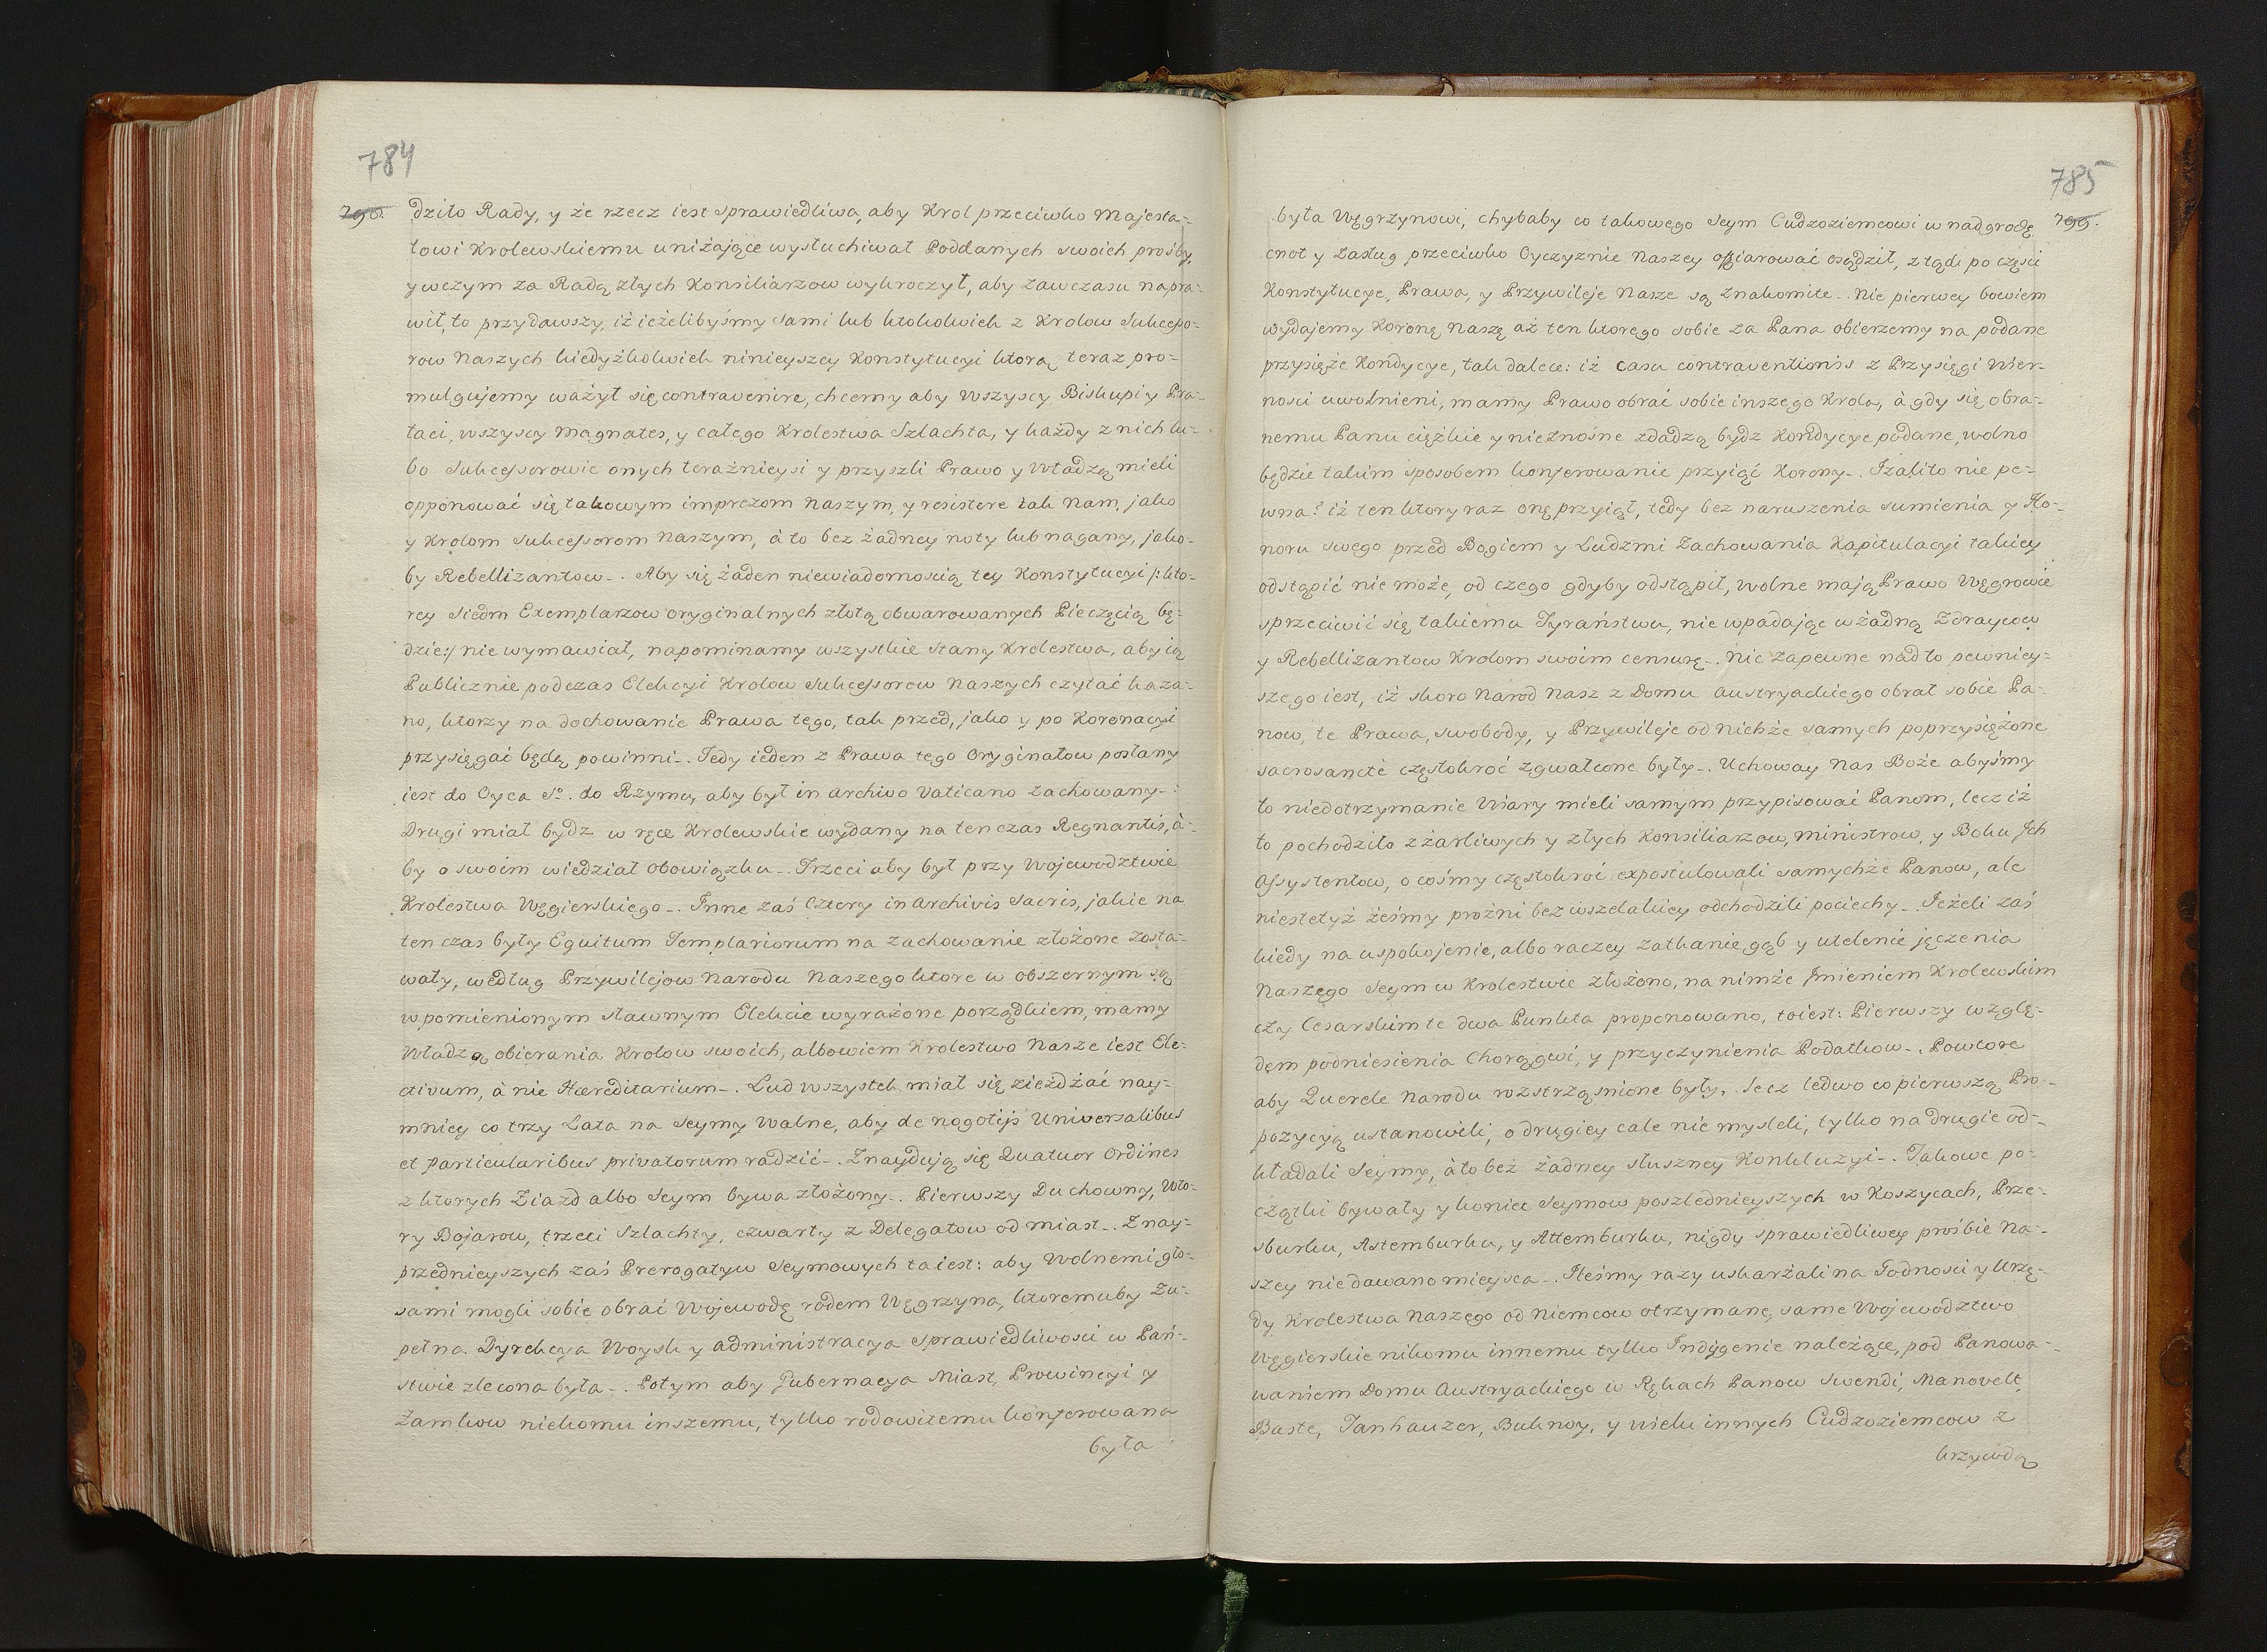 784
798.
dziło Rady, y że rzecz iest sprawiedliwa, aby Krol przeciwko Majesta-
towi Krolewskiemu uniżające wysłuchiwał Poddanych swoich prośby,
y wczym za Radą złych Konsiliarzow wykroczył, aby zawczasu napra-
wił, to przydawszy, iż ieżelibyśmy sami lub ktokolwiek z Krolow Sukcesso-
row Naszych kiedyżkolwiek ninieyszey Konstytucyi ktorą teraz pro-
mulgujemy ważył się contravenire, chcemy aby wszyscy Biskupi y Pra-
łaci, wszyscy Magnates, y całego Krolestwa Szlachta, y każdy z nich lu-
bo Sukcessorowie onych teraźnieysi y przyszli Prawo y Władzą mieli
opponować się takowym imprezom Naszym, y resistere tak Nam, jako
y Krolom Sukcessorom Naszym, à to bez żadney noty lub nagany, jako-
by Rebellizantow_. Aby się żaden niewiadomością tey Konstytucyi /: kto-
rey siedm Exemplarzow oryginalnych złotą obwarowanych Pieczęcią bę-
dzie:/ nie wymawiał, napominamy wszystkie Stany Krolestwa, aby ią
Publicznie podczas Elekcyi Krolow Sukcessorow Naszych czytać kaza-
no, ktorzy na dochowanie Prawa tego, tak przed, jako y po Koronacyi
przysięgać będą powinni_. Tedy ieden z Prawa tego Oryginałow posłany
iest do Oyca S°. do Rzymu, aby był in archivo Vaticano zachowany_:
Drugi miał bydz w ręce Krolewskie wydany na ten czas Regnantis, à-
by o swoim wiedział obowiązku_. Trzeci aby był przy Wojewodztwie
Krolestwa Węgierskiego_. Inne zaś cztery in archivis Sacris, jakie na
ten czas były Equitum Templariorum na zachowanie złożone zosta-
wały, według Przywilejow Narodu Naszego ktore w obszernym są
wpomienionym sławnym Elekcie wyrażone porządkiem, mamy
Władzą obierania Krolow swoich, albowiem Krolestwo Nasze iest Ele-
ctivum, à nie Hæreditarium_. Lud wszystek miał się zieżdżać nay-
mniey co trzy Lata na Seymy Walne, aby de nogotijs Universalibus
et particularibus privatorum radzić_. Znaydują się Quatuor Ordines
z ktorych Ziazd albo Seym bywa złożony_. Pierwszy Duchowny, Wto-
ry Bojarow, trzeci Szlachty, czwarty z Delegatow od miast_. Znay-
przednieyszych zaś Prerogatyw Seymowych ta iest: aby Wolnemi gło-
sami mogli sobie obrać Wojewodę rodem Węgrzyna, ktoremuby Zu-
pełna Dyrekcya Woysk y administracya sprawiedliwosci w Pań-
stwie zlecona była_. Potym aby Gubernacya Miast, Prowincyi y
Zamkow niekomu inszemu, tylko rodowitemu konferowana
była
785
799.
była Węgrzynowi, chybaby co takowego Seym Cudzoziemcowi w nadgrodę
cnot y Zasług przeciwko Oyczyznie Naszey offiarować osądził, z tąd po części
Konstytucye, Prawa, y Przywileje Nasze są Znakomite_. Nie pierwey bowiem
wydajemy Koronę Naszę aż ten ktorego sobie za Pana obierzemy na podane
przysięże Kondycye, tak dalece: iż casu contraventionis z Przysięgi Wier-
ności uwolnieni, mamy Prawo obrać sobie inszego Krola, à gdy się obra-
nemu Panu ciężkie y nieznośne zdadzą bydz Kondycye podane, wolno
będzie takim sposobem konferowanie przyiąć Korony_. Izalito nie pe-
wna? iż ten ktory raz onę przyiął, tedy bez naruszenia sumienia y Ho-
noru swego przed Bogiem y Ludzmi Zachowania Kapitulacyi takiey
odstąpić nie może, od czego gdyby odstąpił, wolne mają Prawo Węgrowie
sprzeciwić się takiemu Tyraństwu, nie wpadając w żadną Zdraycow
y Rebellizantow Krolom swoim censurę_. Nic zapewne nad to pewniey-
szego iest, iż skoro Narod Nasz z Domu Austryackiego obrał sobie Pa-
now, te Prawa, swobody, y Przywileje od nichże samych poprzysiężone
sacrosanctè częstokroć zgwałcone były_. Uchoway nas Boże abyśmy
to niedotrzymanie Wiary mieli samym przypisować Panom, lecz iż
to pochodziło z żarliwych y złych Konsiliarzow, Ministrow, y Boku Ich
Assystentow, o cośmy częstokroć expostulowali samychże Panow, ale
niestetyż żeśmy prożni bez wszelakiey odchodzili pociechy_. Ieżeli zaś
kiedy na uspokojenie, albo raczey zatkanie gąb y utelenie jęczenia
Naszego Seym w Krolestwie złożono, na nimże Imieniem Krolewskim
czy Cesarskim te dwa Punkta proponowano, toiest: Pierwszy wzglę-
dem podniesienia Chorągwi, y przyczynienia Podatkow_. Powtore
aby Querele Narodu rozstrząśnione były, lecz ledwo co pierwszą Pro-
pozycyą ustanowili, o drugiey cale nie mysleli, tylko na drugie od-
kładali Seymy, à to bez żadney słuszney Konkluzyi_. Takowe po-
czątki bywały y koniec Seymow poszlednieyszych w Koszycach, Pre-
sburku, Astemburku, y Attemburku, nigdy sprawiedliwey prośbie Na-
szey nie dawano mieysca_. Ileśmy razy uskarżali na Godnosci y Urzę-
dy Krolestwa Naszego od Niemcow otrzymane, same Wojewodztwo
Węgierskie nikomu innemu tylko Indygenie należące, pod Panowa-
waniem Domu Austryackiego w Rękach Panow Swendi, Manovelt,
Baste, Tanhauzer, Buknoy, y wielu innych Cudzoziemcow z
krzywdą